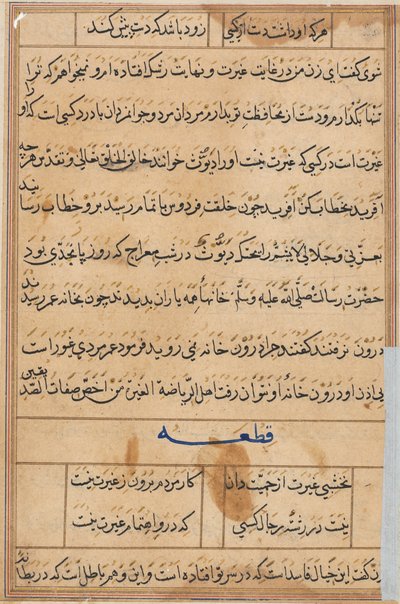 هر که او داشت دست از کسی زود باشد که دست پیش کند
شوی گفت ای زن مرد در غایت غیرت و نهایت رشک افتاده ام و نمیخواهم که ترا
تنها بگذارم و دست از محافظت تو بدارم مردان مرد و جوانمردان با درد کسی است که او
غیرت است در کسی که غیرت نیست او را دیوث خوانند خالق الخلق تعالی و تقدس هرچه
آفرید بخطاب کن آفرید چون خلقت فردوس باتمام رسید برو خطاب رسانید
بعزتی و جلالی لا یشم رایحتک دیوث در شب معراج که روز پا بود
حضرت رسالت صلی الله علیه و سلم خانهاء همه یاران بدیدند چون بخانه عمر رسیدند
درون نرفتند گفتند چرا درون خانه نمی روید فرمود عمر مردی غیور است
بی اذن او درون خانه او نتوان رفت اهل الریاضة الغیرة من اخص صفات
قطعه
نخشبی غیرت از حمیت دان کار مردم برون ز غیرت نیست
نیست در رسته رجال کسی که در و اهتمام غیرت نیست
زن گفت این خیال فاسد است که در سر تو افتاده است و این وهم باطل است که در